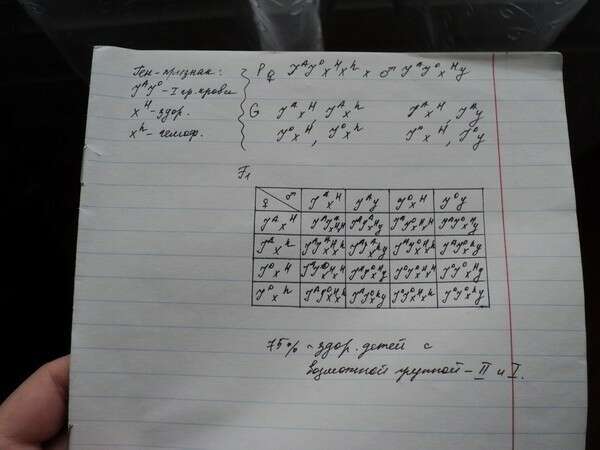 Ген-признак:
J^A J^O - I гр. крови
x^H - здор.
x^h - гемоф.
P ♀ J^A J^O x^H x^h x ♂ J^A J^O x^H y
G J^A x^H, J^A x^h J^A x^H, J^A y
J^O x^H, J^O x^h J^O x^H, J^O y
F₁
♀ ♂ J^A x^H J^A y J^O x^H J^O y
J^A x^H J^A J^A x^H x^H J^A J^A x^H y J^A J^O x^H x^H J^A J^O x^H y
J^A x^h J^A J^A x^H x^h J^A J^A x^h y J^A J^O x^H x^h J^A J^O x^h y
J^O x^H J^A J^O x^H x^H J^A J^O x^H y J^O J^O x^H x^H J^O J^O x^H y
J^O x^h J^A J^O x^H x^h J^A J^O x^h y J^O J^O x^H x^h J^O J^O x^h y
75% - здор. детей с
возможной группой - II и I.